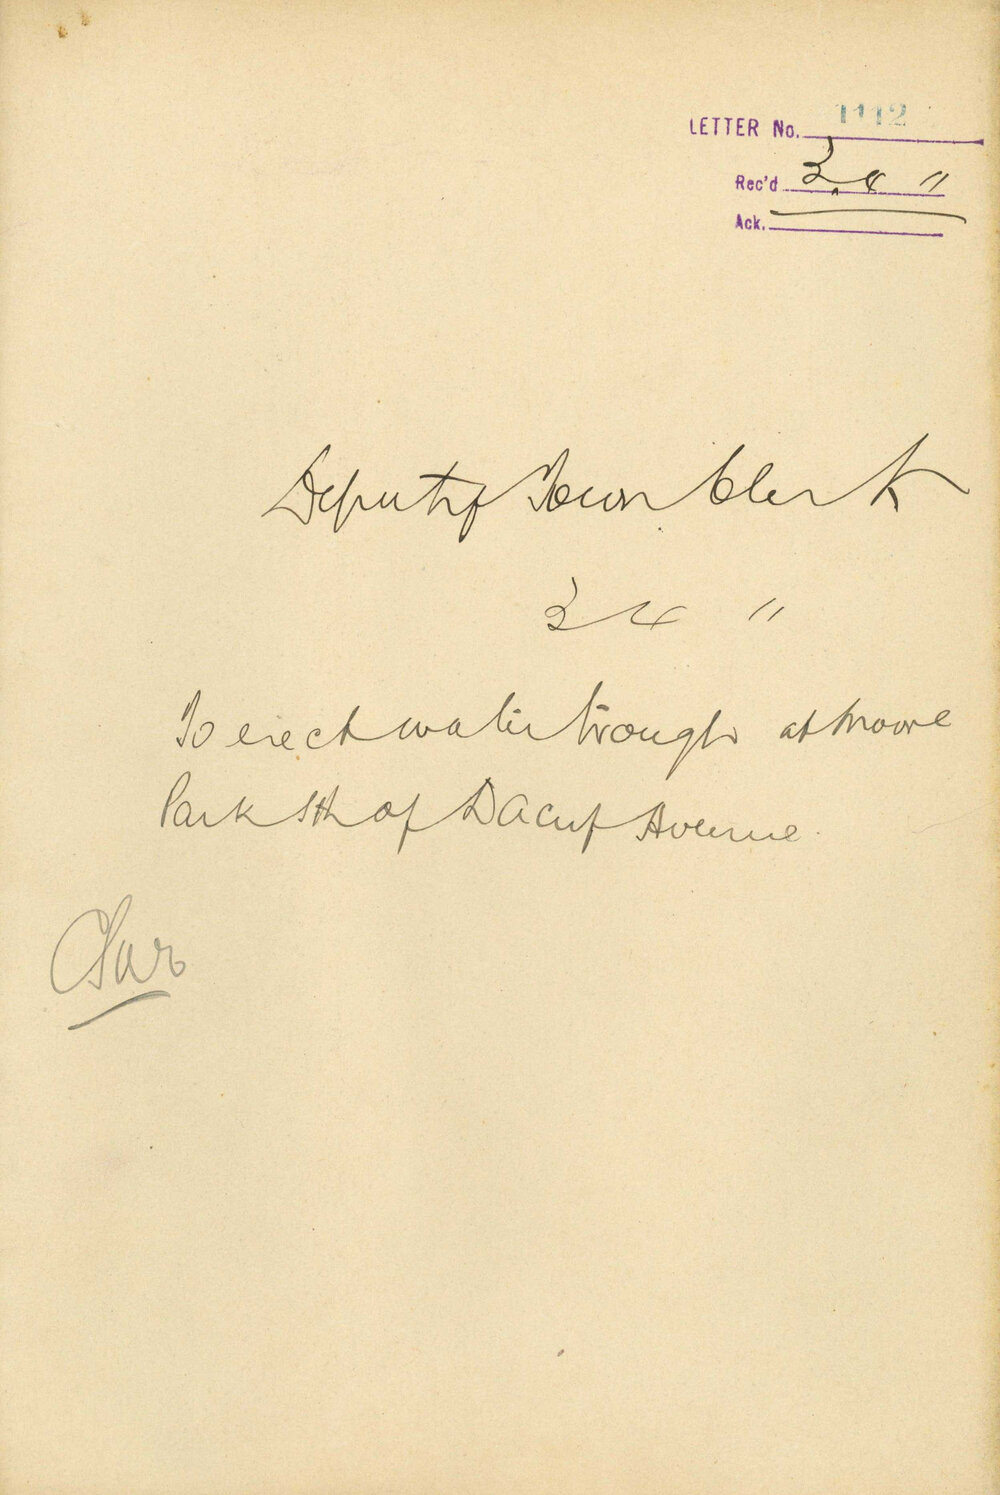 LETTER No. 1112
Rec'd 3.4 11
Ack.
Deputy Town Clerk
3 4 11
To erect water trough at Moore
Park Sth of Dacey Avenue